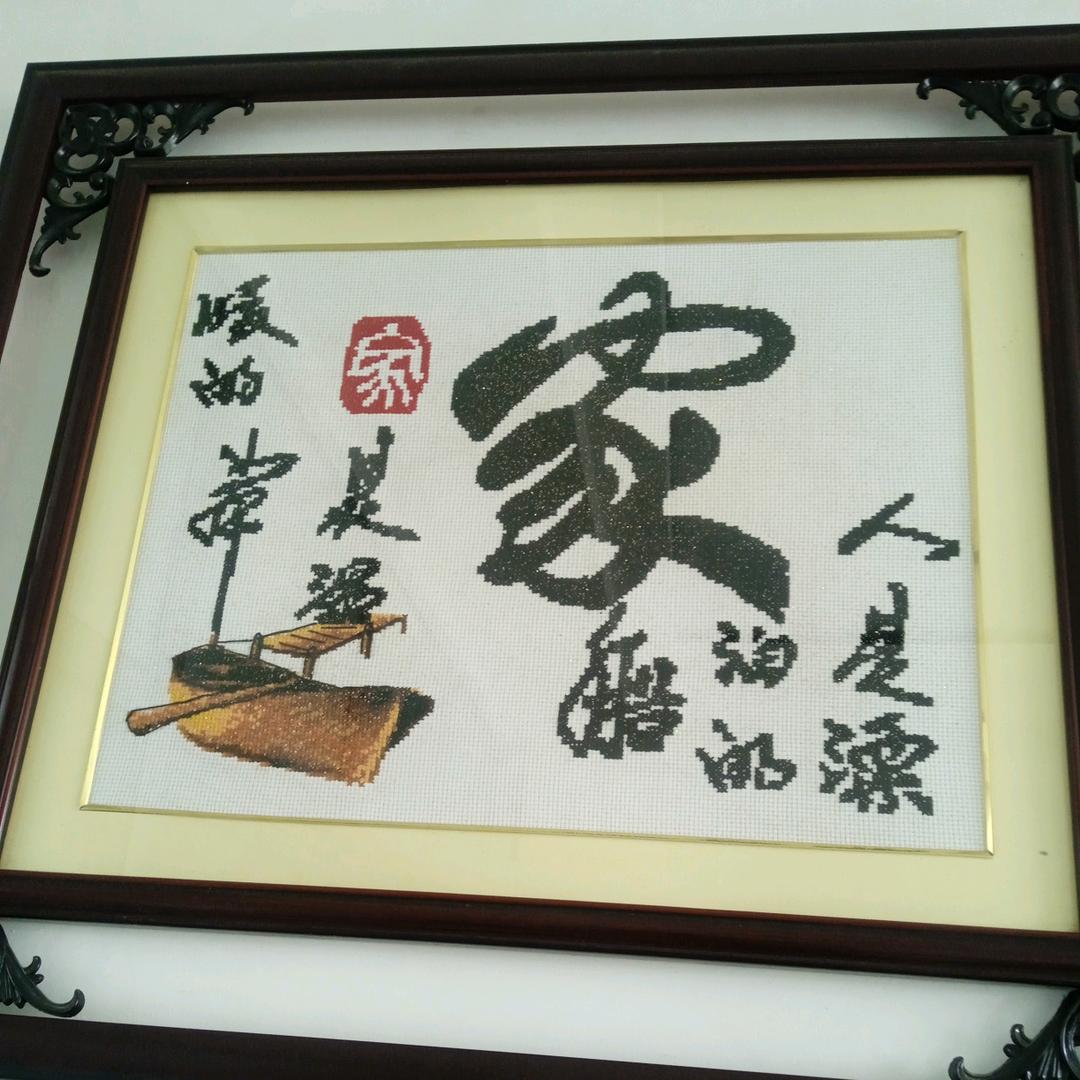 家
人是漂
泊的
船
家
是温
暖的岸